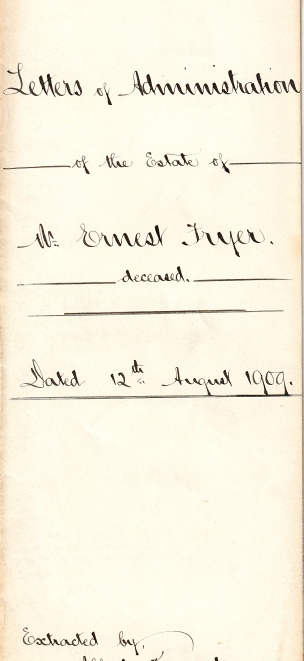 Letters of Administration
of the Estate of
Mr Ernest Fryer.
deceased.
Dated 12th August 1909.
Extracted by,